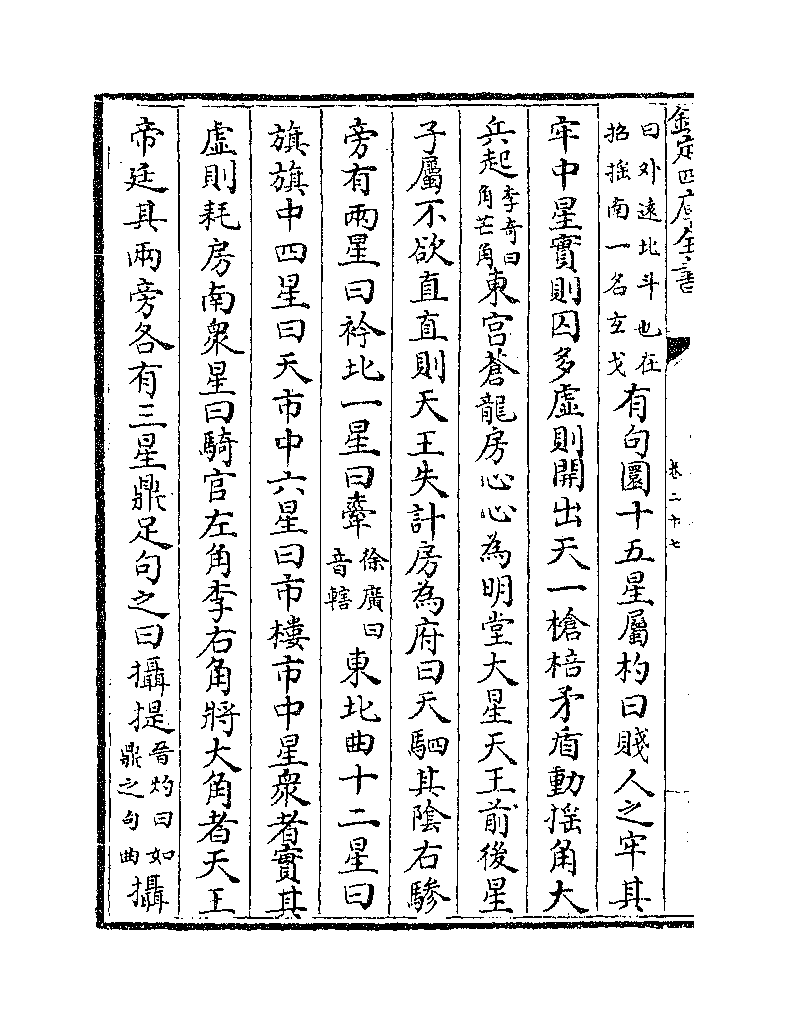 欽定四庫全書
卷二十七
曰外遠北斗也在
招搖南一名玄戈有句圜十五星屬杓曰賤人之牢其
牢中星實則囚多虛則開出天一槍棓矛盾動搖角大
兵起李奇曰角芒角東宮蒼龍房心心為明堂大星天王前後星
子屬不欲直直則天王失計房為府曰天駟其陰右驂
旁有兩星曰衿北一星曰舝徐廣曰音轄東北曲十二星曰
旗旗中四星曰天市中六星曰市樓市中星衆者實其
虛則耗房南衆星曰騎官左角李右角將大角者天王
帝廷其兩旁各有三星鼎足句之曰攝提晉灼曰如鼎之句曲攝